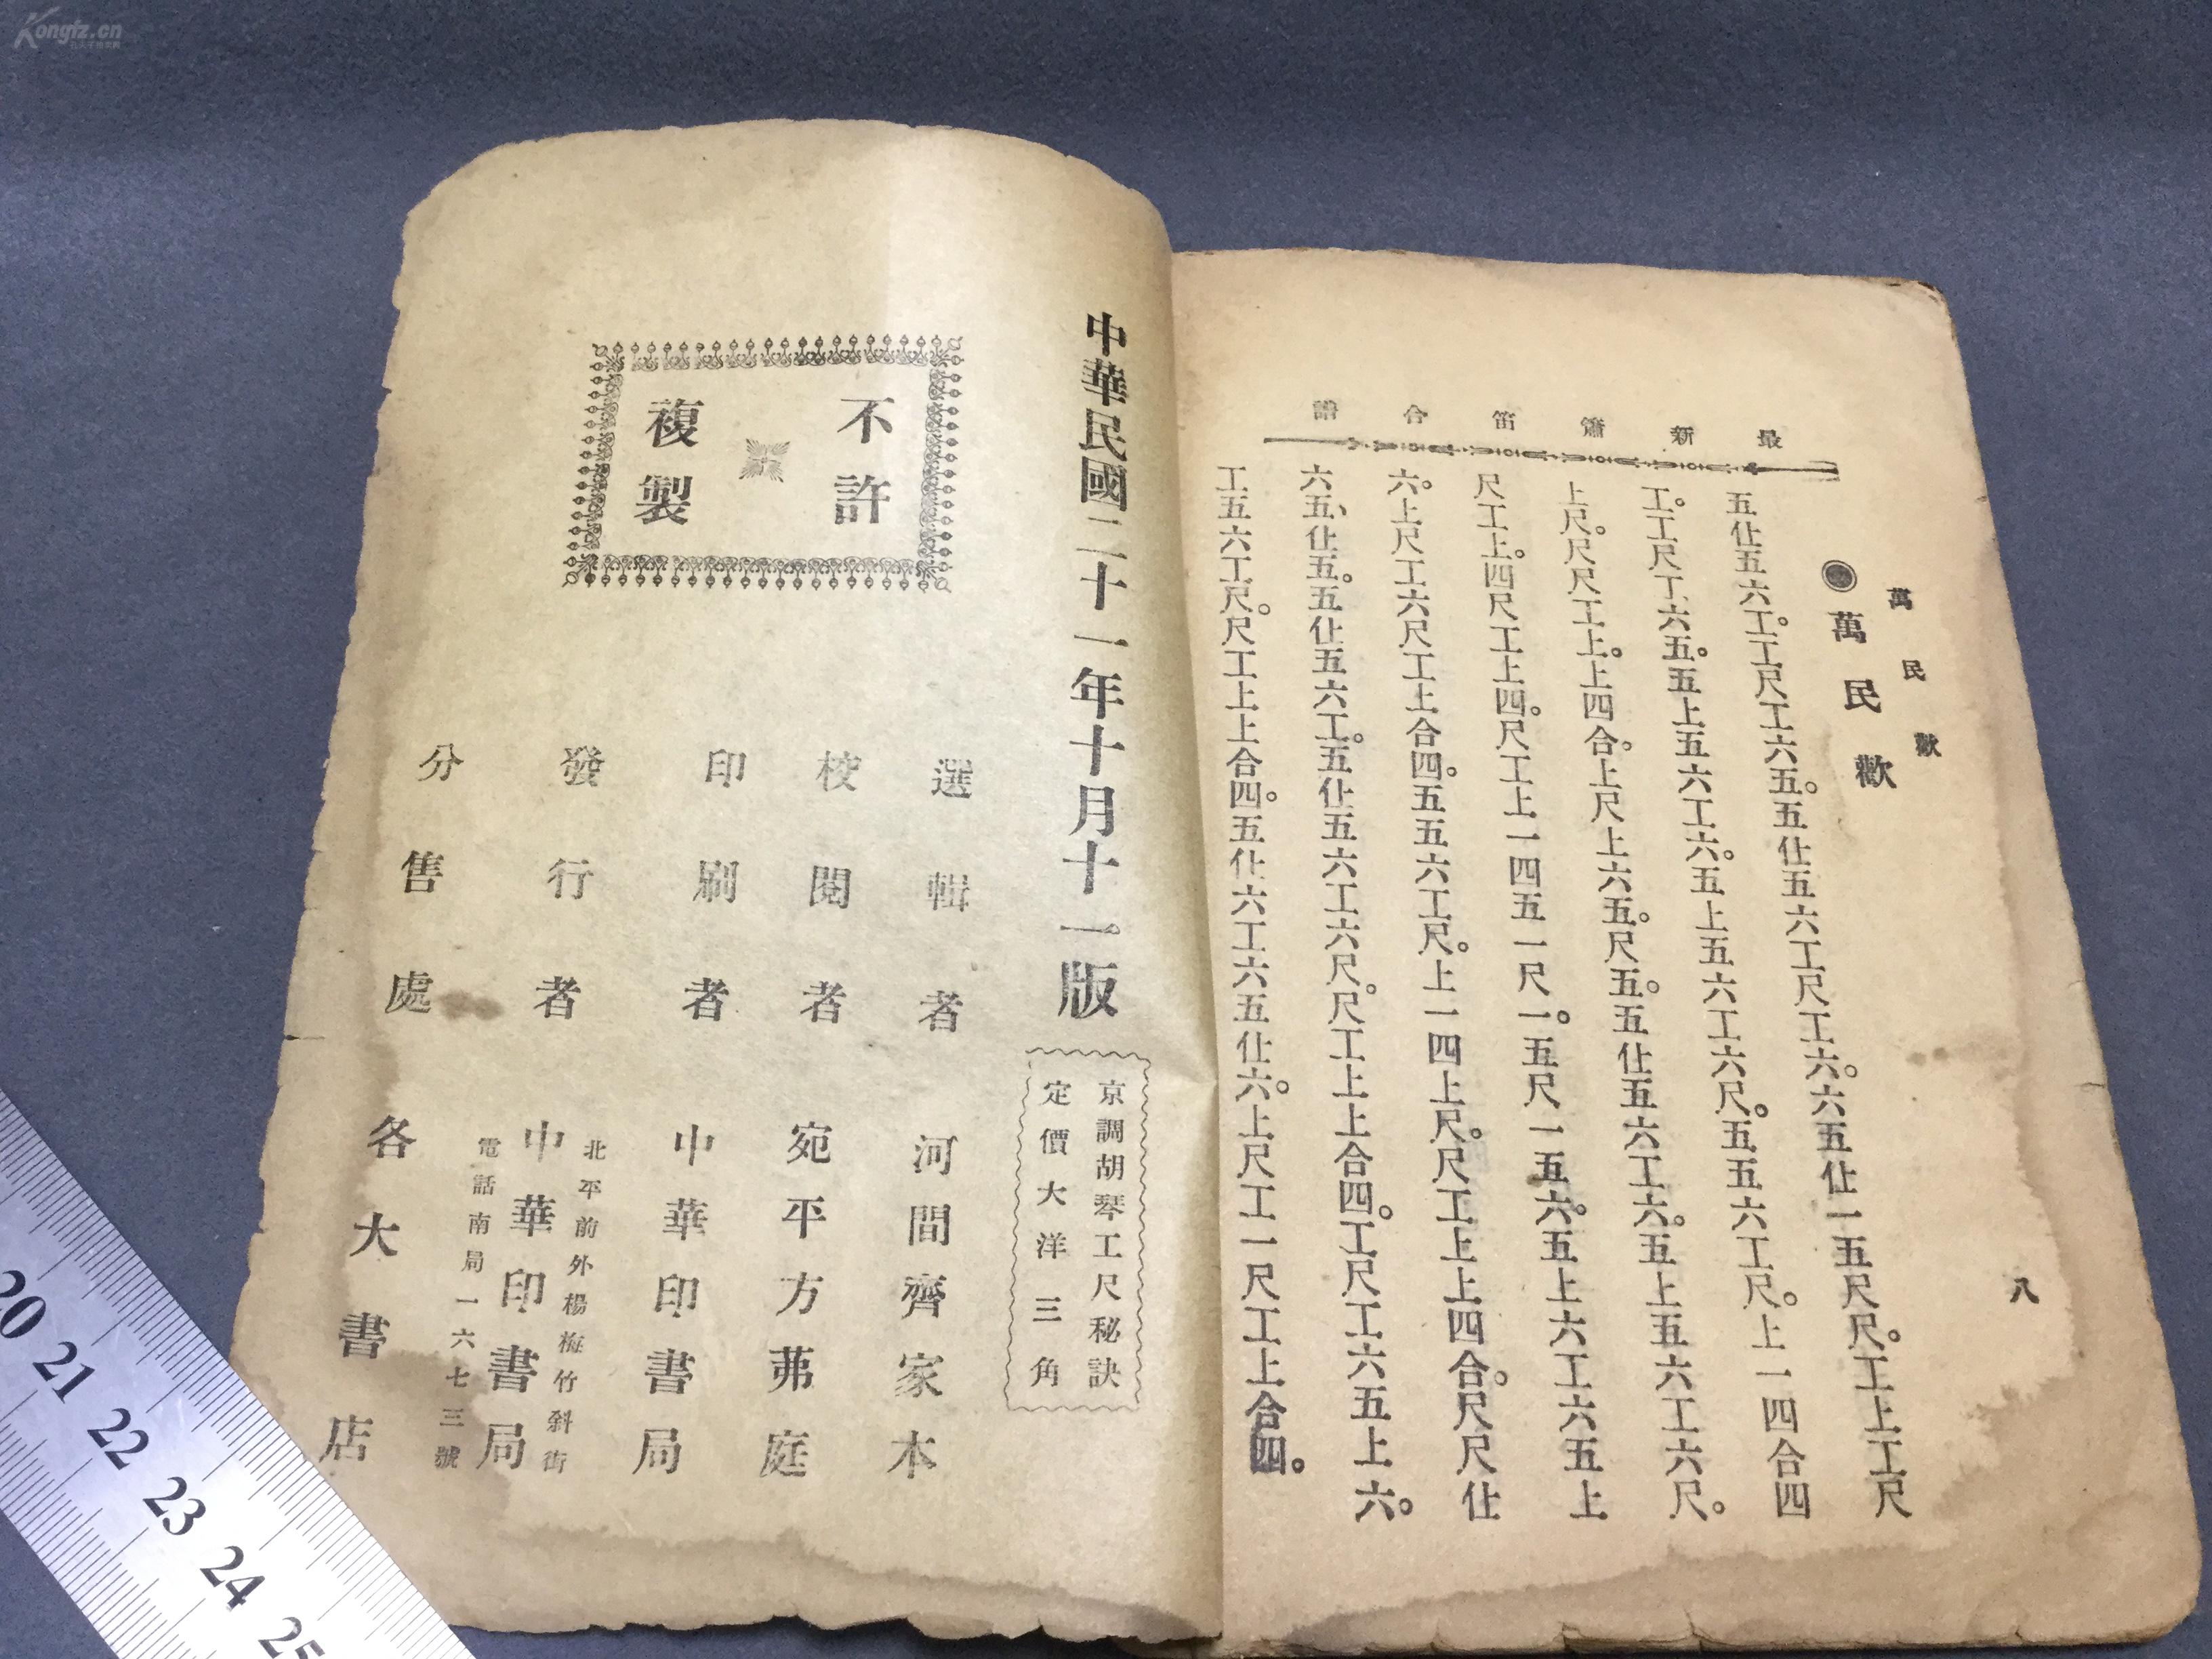 萬民歡
八
最新簫笛合譜
萬民歡
五仩五六工。工尺工六五。五仩五六工尺工六。六五仩一五尺尺。工上工尺
工。工尺工六五。五上五六工六。五上五六工六尺。五五六工尺。上一四合四
上尺。尺尺工上。上四合。上尺上六五。尺五。五仩五六工六。五上五六工六尺。
尺工上。四尺工上四。尺工上一四五一尺一。五尺一五六。五上六工六五上
六。上尺工六尺工上合四。五五六工尺。上一四上尺。尺工上上四合。尺尺仩
六五、仩五。五仩五六工。五仩五六工六尺。尺工上上合四。工尺工六五上六。
工五六工尺。尺工上上合四。五仩六工六五仩六。上尺工一尺工上合四。
中華民國二十一年十月十一版
京調胡琴工尺秘訣
定價大洋三角
不許
複製
選輯者 河間齊家本
校閱者 宛平方茀庭
印刷者 中華印書局
發行者 北平前外楊梅竹斜街
中華印書局
電話南局一六七三號
分售處 各大書店
Kongfz.cn